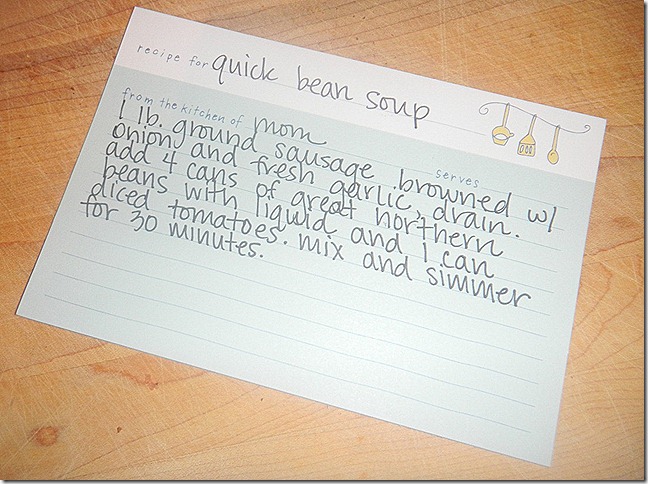 recipe for quick bean soup
from the kitchen of mom
serves
1 lb. ground sausage browned w/
onion and fresh garlic, drain.
add 4 cans of great northern
beans with liquid and 1 can
diced tomatoes. mix and simmer
for 30 minutes.